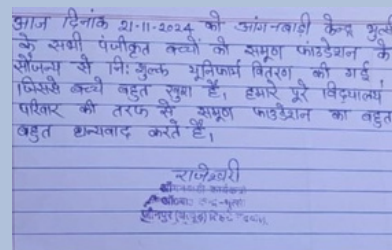 आज दिनांक 21-11-2024 को आंगनबाड़ी केन्द्र
के सभी पंजीकृत बच्चों को समूण फाउंडेशन के
सौजन्य से निःशुल्क यूनिफार्म वितरण की गई
जिससे बच्चे बहुत खुश है, हमारे पूरे विद्यालय
परिवार की तरफ से समूण फाउंडेशन का बहुत
बहुत धन्यवाद करते है,
राजेश्वरी